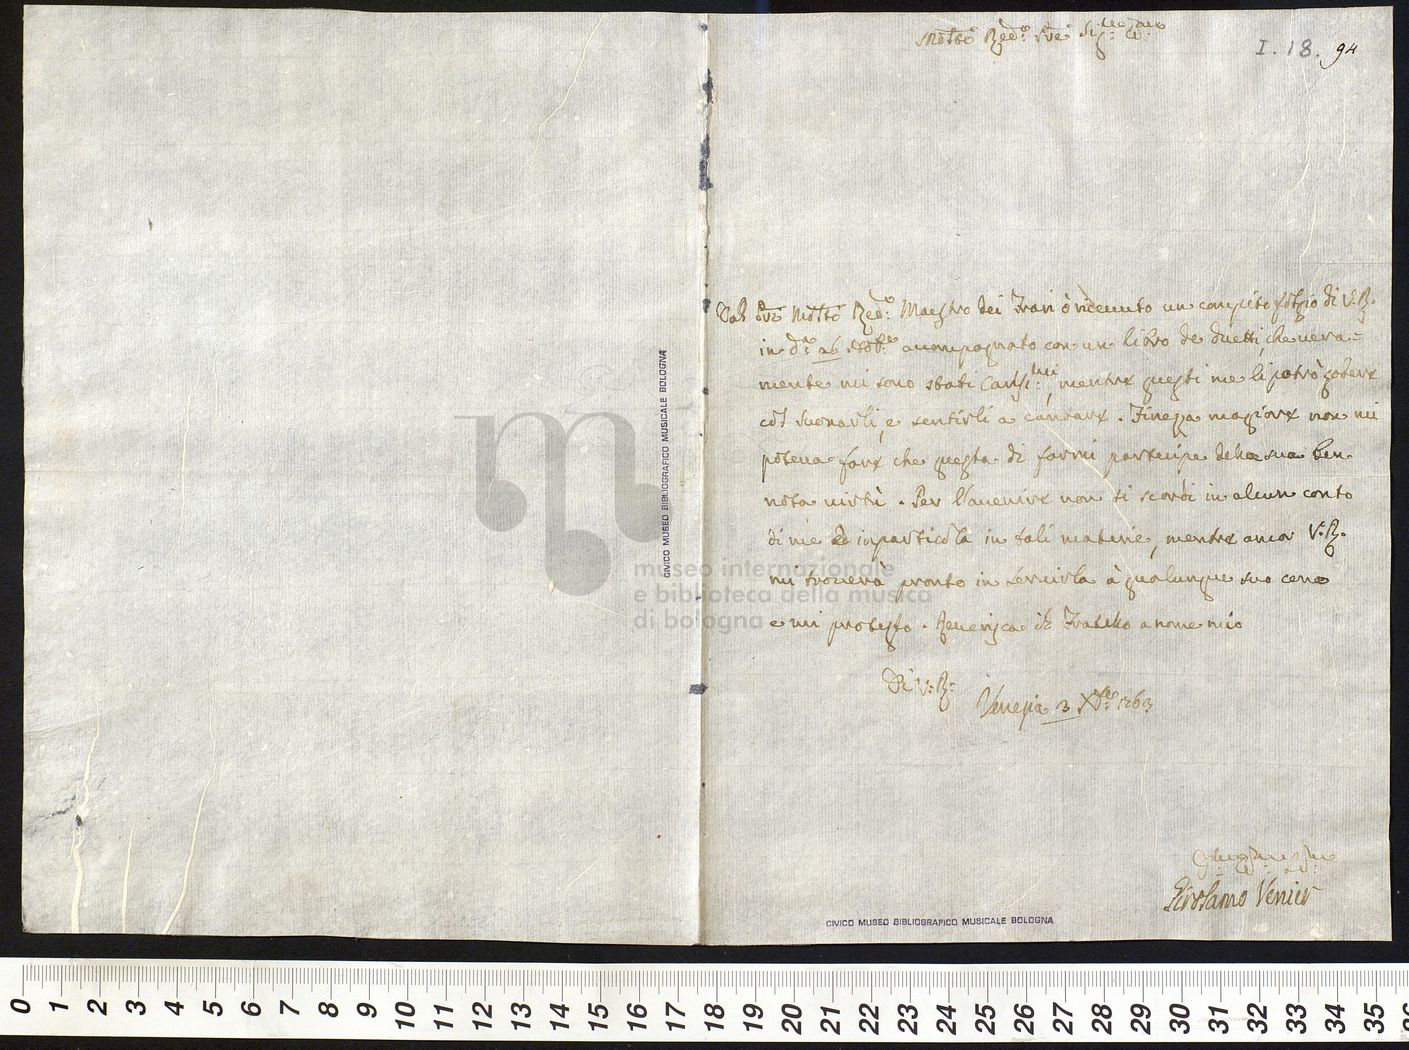 Molto Red.o P.re Sig.re
I. 18. 94
Dal P.re Molto Red.o Maestro dei Frari ò ricevuto un compito foglio di V. R.
in d.a 26 accompagnato con un libro de duetti, che vera=
mente mi sono stati cariss.mi, mentre questi me li potrò godere
col suonarli, e sentirli a cantare. Finezza magiore non mi
poteva fare che questa di farmi partecipe della sua ben
nota virtù. Per l'avenire non si scordi in alcun conto
di me ed in particola in tali materie, mentre ancor V. R.
mi troverà pronto in servirla à qualunque suo ceno
e mi protesto. Reverisca il Fratello a nome mio
Di V. R.
Venezia 3 Xbre 1763
Girolamo Venier
CIVICO MUSEO BIBLIOGRAFICO MUSICALE BOLOGNA
CIVICO MUSEO BIBLIOGRAFICO MUSICALE BOLOGNA
museo internazionale
e biblioteca della musica
di bologna
0 1 2 3 4 5 6 7 8 9 10 11 12 13 14 15 16 17 18 19 20 21 22 23 24 25 26 27 28 29 30 31 32 33 34 35